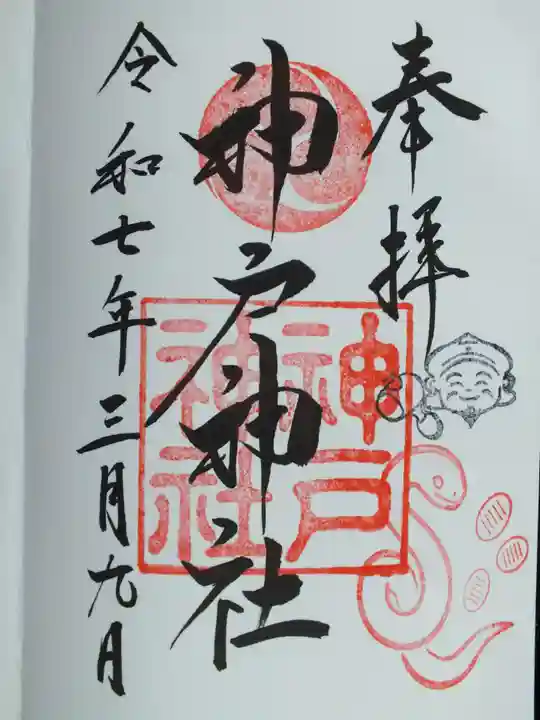 奉拝
神戸神社
神戸
神社
令和七年三月九月